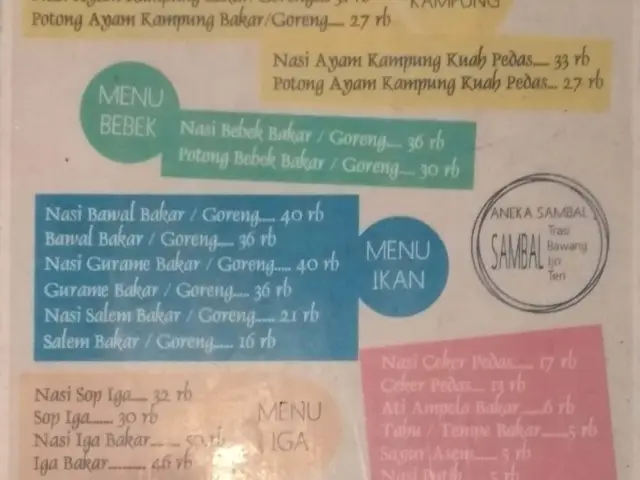 KAMPUNG
Potong Ayam Kampung Bakar/Goreng.... 27 rb
Nasi Ayam Kampung Kuah Pedas.... 33 rb
Potong Ayam Kampung Kuah Pedas... 27 rb
MENU
BEBEK
Nasi Bebek Bakar / Goreng.... 36 rb
Potong Bebek Bakar / Goreng.... 30 rb
Nasi Bawal Bakar / Goreng.... 40 rb
Bawal Bakar / Goreng.... 36 rb
Nasi Gurame Bakar / Goreng..... 40 rb
Gurame Bakar / Goreng.... 36 rb
Nasi Salem Bakar / Goreng..... 21 rb
Salem Bakar / Goreng.... 16 rb
MENU
IKAN
ANEKA SAMBAL
SAMBAL
Trasi
Bawang
Ijo
Teri
Nasi Ceker Pedas..... 17 rb
Ceker Pedas.... 13 rb
Ati Ampela Bakar.....6 rb
Tahu / Tempe Bakar......5 rb
Sayur Asem..... 5 rb
Nasi Putih..... 5 rb
Nasi Sop Iga.... 32 rb
Sop Iga....... 30 rb
Nasi Iga Bakar........ 50 rb
Iga Bakar........... 46 rb
MENU
IGA